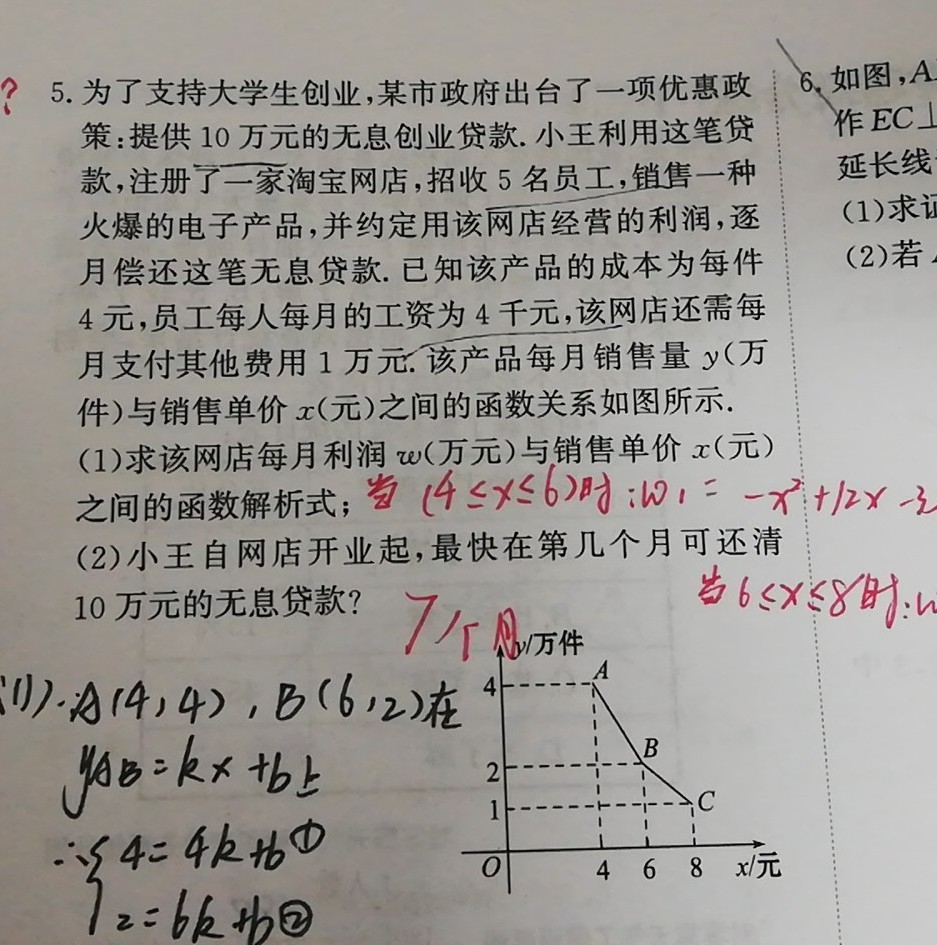 ?
5. 为了支持大学生创业,某市政府出台了一项优惠政
策:提供 10 万元的无息创业贷款. 小王利用这笔贷
款,注册了一家淘宝网店,招收 5 名员工,销售一种
火爆的电子产品,并约定用该网店经营的利润,逐
月偿还这笔无息贷款. 已知该产品的成本为每件
4 元,员工每人每月的工资为 4 千元,该网店还需每
月支付其他费用 1 万元. 该产品每月销售量 y(万
件)与销售单价 x(元)之间的函数关系如图所示.
(1)求该网店每月利润 w(万元)与销售单价 x(元)
之间的函数解析式; 当 (4≤x≤6)时:w₁ = -x²+12x-3
(2)小王自网店开业起,最快在第几个月可还清
当6≤x≤8时:w
10 万元的无息贷款? 7个月
y/万件
4
A
2
B
1
C
O
4 6 8 x/元
(1)∵A(4,4),B(6,2)在
yAB=kx+b上
∴{4=4k+b①
2=6k+b②
6. 如图,A
作 EC⊥
延长线
(1)求证
(2)若